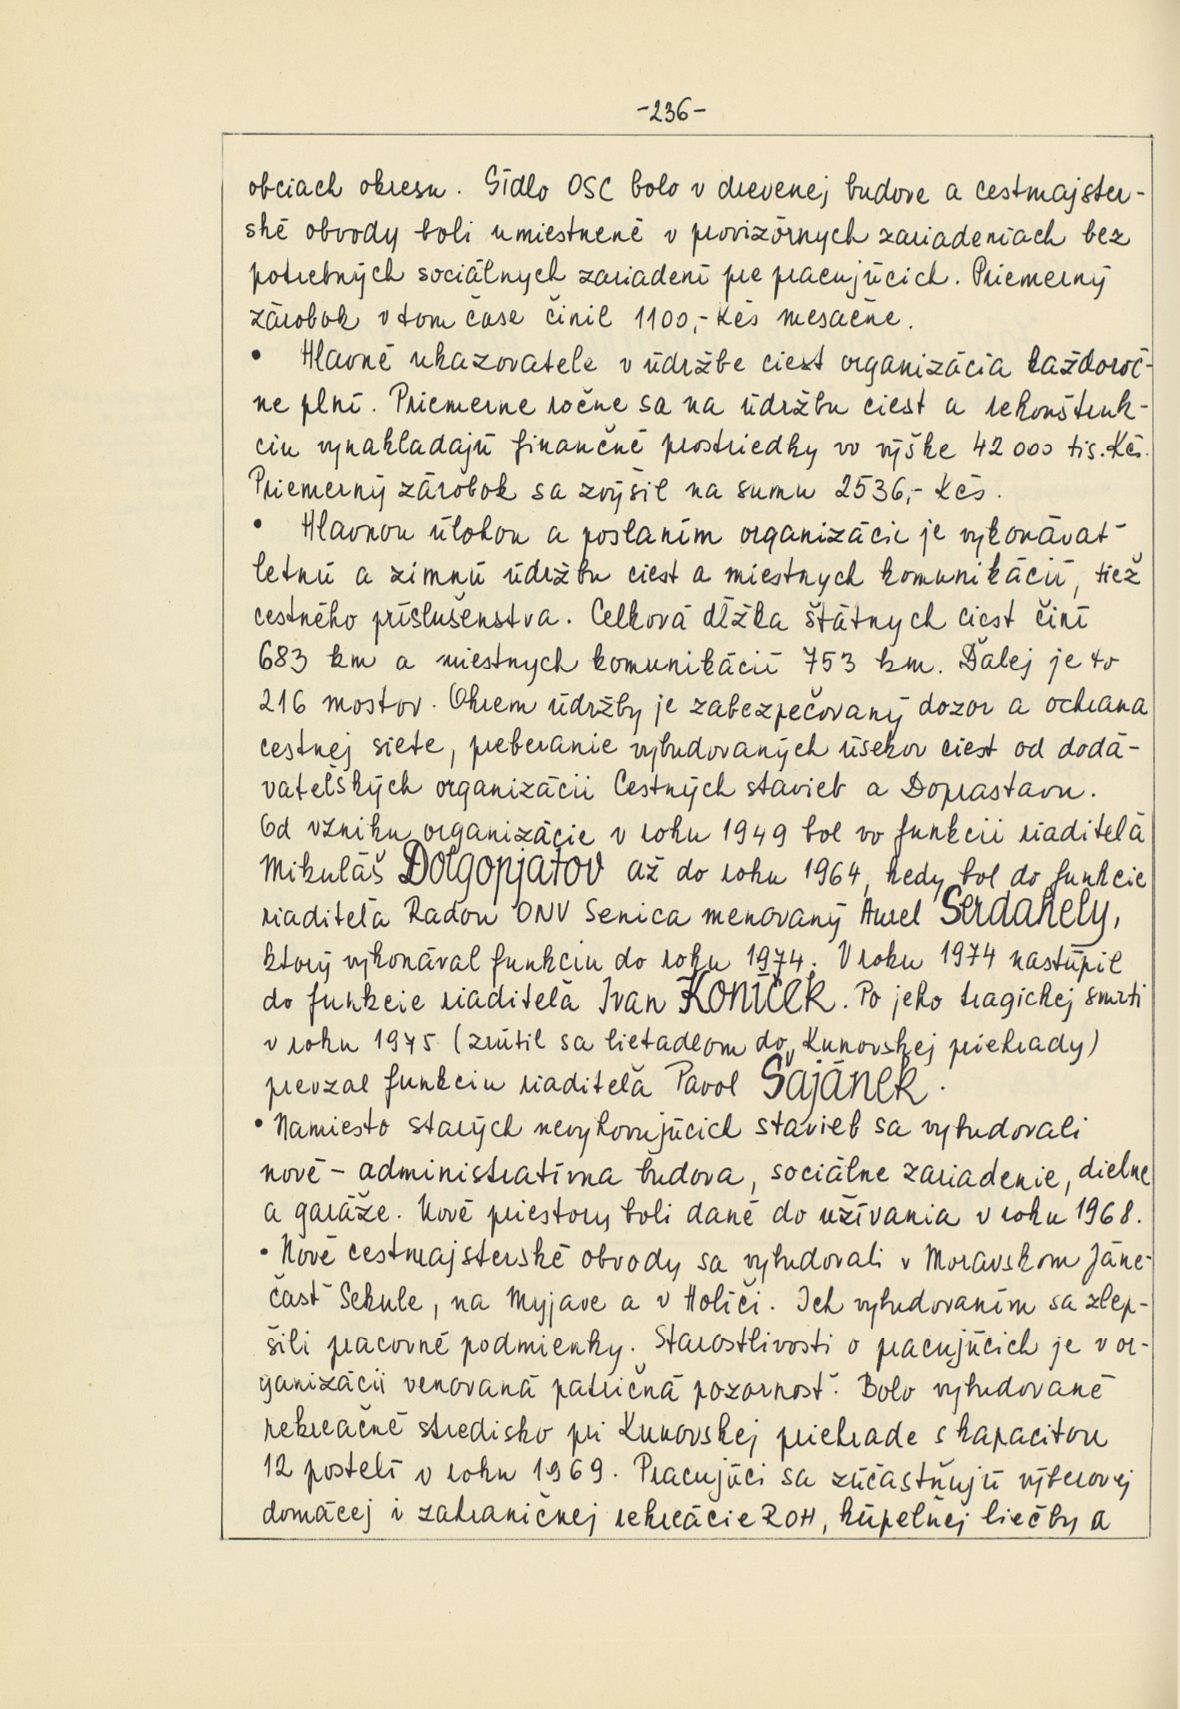 -236-
obciach okresu. Sídlo OSC bolo v drevenej budove a cestmajster-
ské obvody boli umiestnené v provizórnych zariadeniach bez
potrebných sociálnych zariadení pre pracujúcich. Priemerný
zárobok v tom čase činil 1100,- Kčs mesačne.
• Hlavné ukazovatele v údržbe ciest organizácia každoroč-
ne plní. Priemerne ročne sa na údržbu ciest a rekonštruk-
ciu vynakladajú finančné prostriedky vo výške 42 000 tis. Kčs.
Priemerný zárobok sa zvýšil na sumu 2536,- Kčs.
• Hlavnou úlohou a poslaním organizácie je vykonávať
letnú a zimnú údržbu ciest a miestnych komunikácií, tiež
cestného príslušenstva. Celková dĺžka štátnych ciest činí
683 km a miestnych komunikácií 753 km. Ďalej je to
216 mostov. Okrem údržby je zabezpečovaný dozor a ochrana
cestnej siete, preberanie vybudovaných úsekov ciest od dodá-
vateľských organizácii Cestných stavieb a Doprastavu.
Od vzniku organizácie v roku 1949 bol vo funkcii riaditeľa
Mikuláš Dolgopjatov až do roku 1964, kedy bol do funkcie
riaditeľa Radou ONV Senica menovaný Aurel Serdahely,
ktorý vykonával funkciu do roku 1974. V roku 1974 nastúpil
do funkcie riaditeľa Ivan Koníček. Po jeho tragickej smrti
v roku 1975 (zrútil sa lietadlom do Kunovskej priehrady)
prevzal funkciu riaditeľa Pavol Šajánek.
• Namiesto starých nevyhovujúcich stavieb sa vybudovali
nové - administratívna budova, sociálne zariadenie, dielne
a garáže. Nové priestory boli dané do užívania v roku 1968.
• Nové cestmajsterské obvody sa vybudovali v Moravskom Jáne-
časť Sekule, na Myjave a v Holíči. Ich vybudovaním sa zlep-
šili pracovné podmienky. Starostlivosti o pracujúcich je v or-
ganizácii venovaná patričná pozornosť. Bolo vybudované
rekreačné stredisko pri Kunovskej priehrade s kapacitou
12 postelí v roku 1969. Pracujúci sa zúčastňujú výberovej
domácej i zahraničnej rekreácie ROH, kúpeľnej liečby a